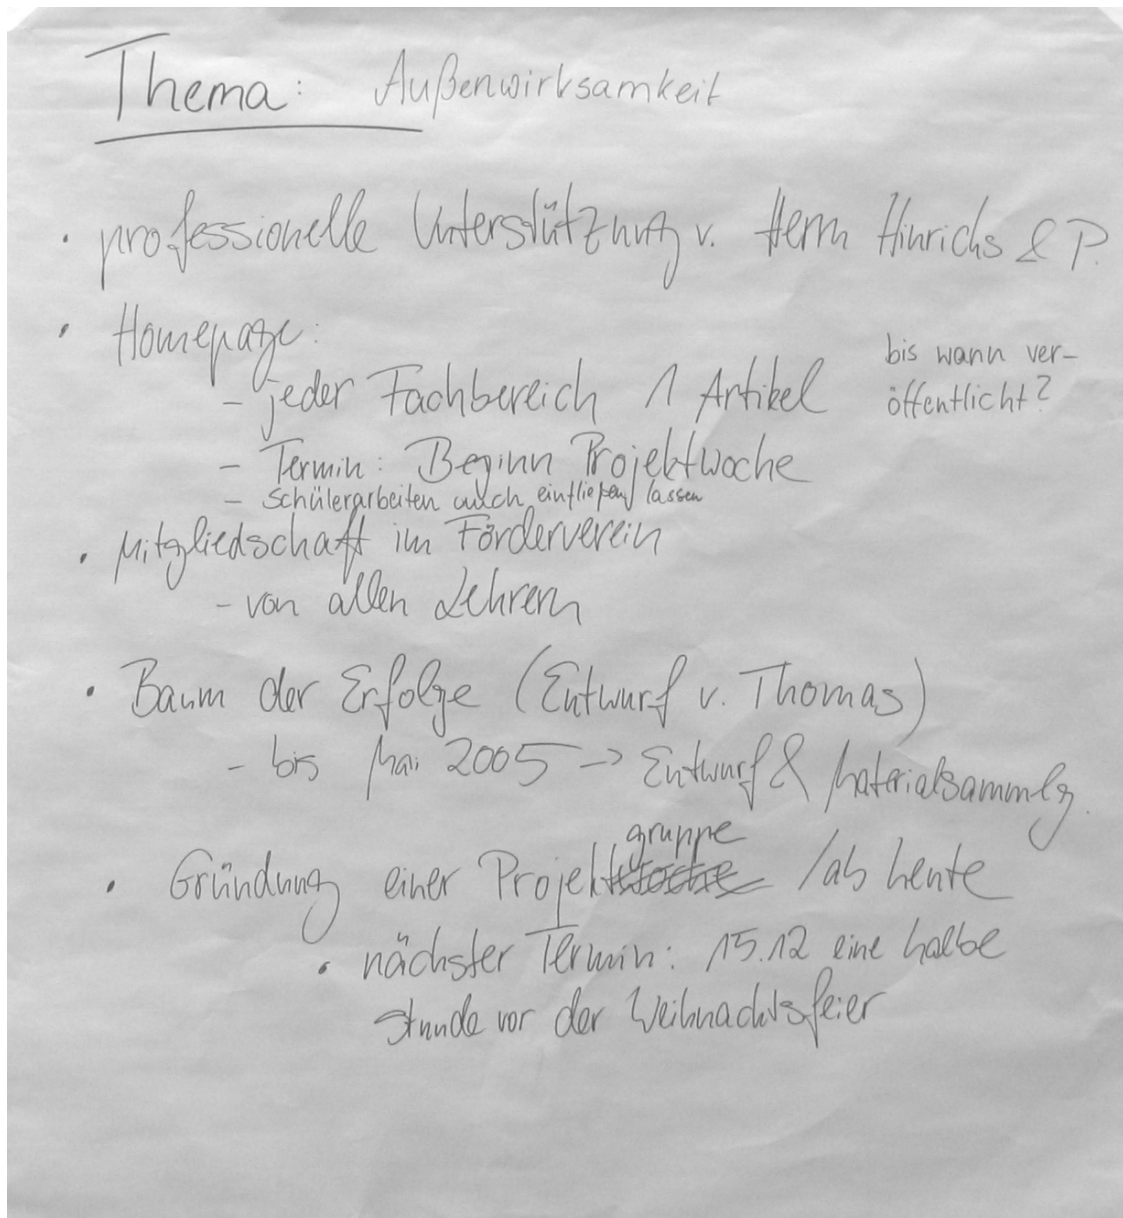 Thema: Außenwirksamkeit
· professionelle Unterstützung v. Herrn Hinrichs & P.
· Homepage:
- jeder Fachbereich 1 Artikel
bis wann ver-
öffentlicht?
- Termin: Beginn Projektwoche
- Schülerarbeiten auch einfließen lassen
· Mitgliedschaft im Förderverein
- von allen Lehrern
· Baum der Erfolge (Entwurf v. Thomas)
- bis Mai 2005 -> Entwurf & Materialsammlg.
gruppe
· Gründung einer Projektwoche /ab heute
· nächster Termin: 15.12 eine halbe
Stunde vor der Weihnachtsfeier